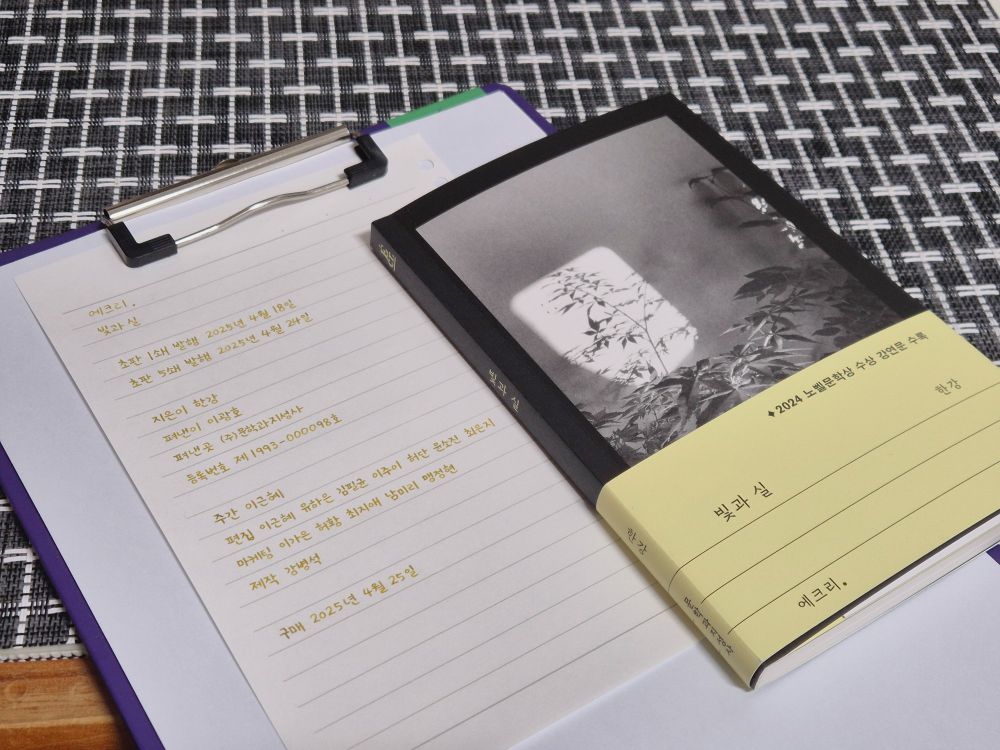 에크리.
빛과 실
초판 1쇄 발행 2025년 4월 18일
초판 5쇄 발행 2025년 4월 24일
지은이 한강
펴낸이 이광호
펴낸곳 (주)문학과지성사
등록번호 제1993-000098호
주간 이근혜
편집 이근혜 유하은 김필균 이주이 허단 윤소진 최은지
마케팅 이가은 허황 최지애 남미리 맹정현
제작 강병석
구매 2025년 4월 25일
빛과 실
한강
문학과지성사
✦ 2024 노벨문학상 수상 강연문 수록
한강
빛과 실
에크리.